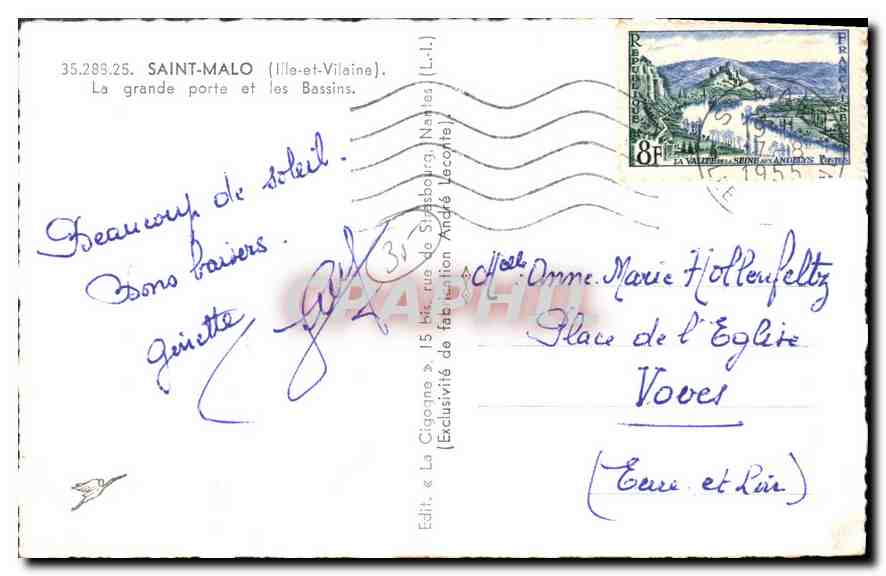 35.288.25. SAINT-MALO (Ille-et-Vilaine).
La grande porte et les Bassins.
Beaucoup de soleil.
Bons baisers.
Ginette
35
Edit. « La Cigogne ». 15 bis, rue de Strasbourg, Nantes (L.-I.)
(Exclusivité de fabrication André Leconte).
RÉPUBLIQUE FRANÇAISE
8F
LA VALLÉE DE LA SEINE AUX ANDELYS
1955
GRAPHIL
Melle Anne-Marie Hollenfeltz
Place de l'Eglise
Voves
(Eure et Loir)